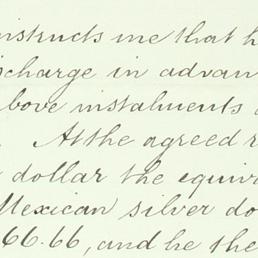 instructs me that h
scharge in advan
bove instalments
. At the agreed r
dollar the equiv
Mexican silver do
66.66, and he the